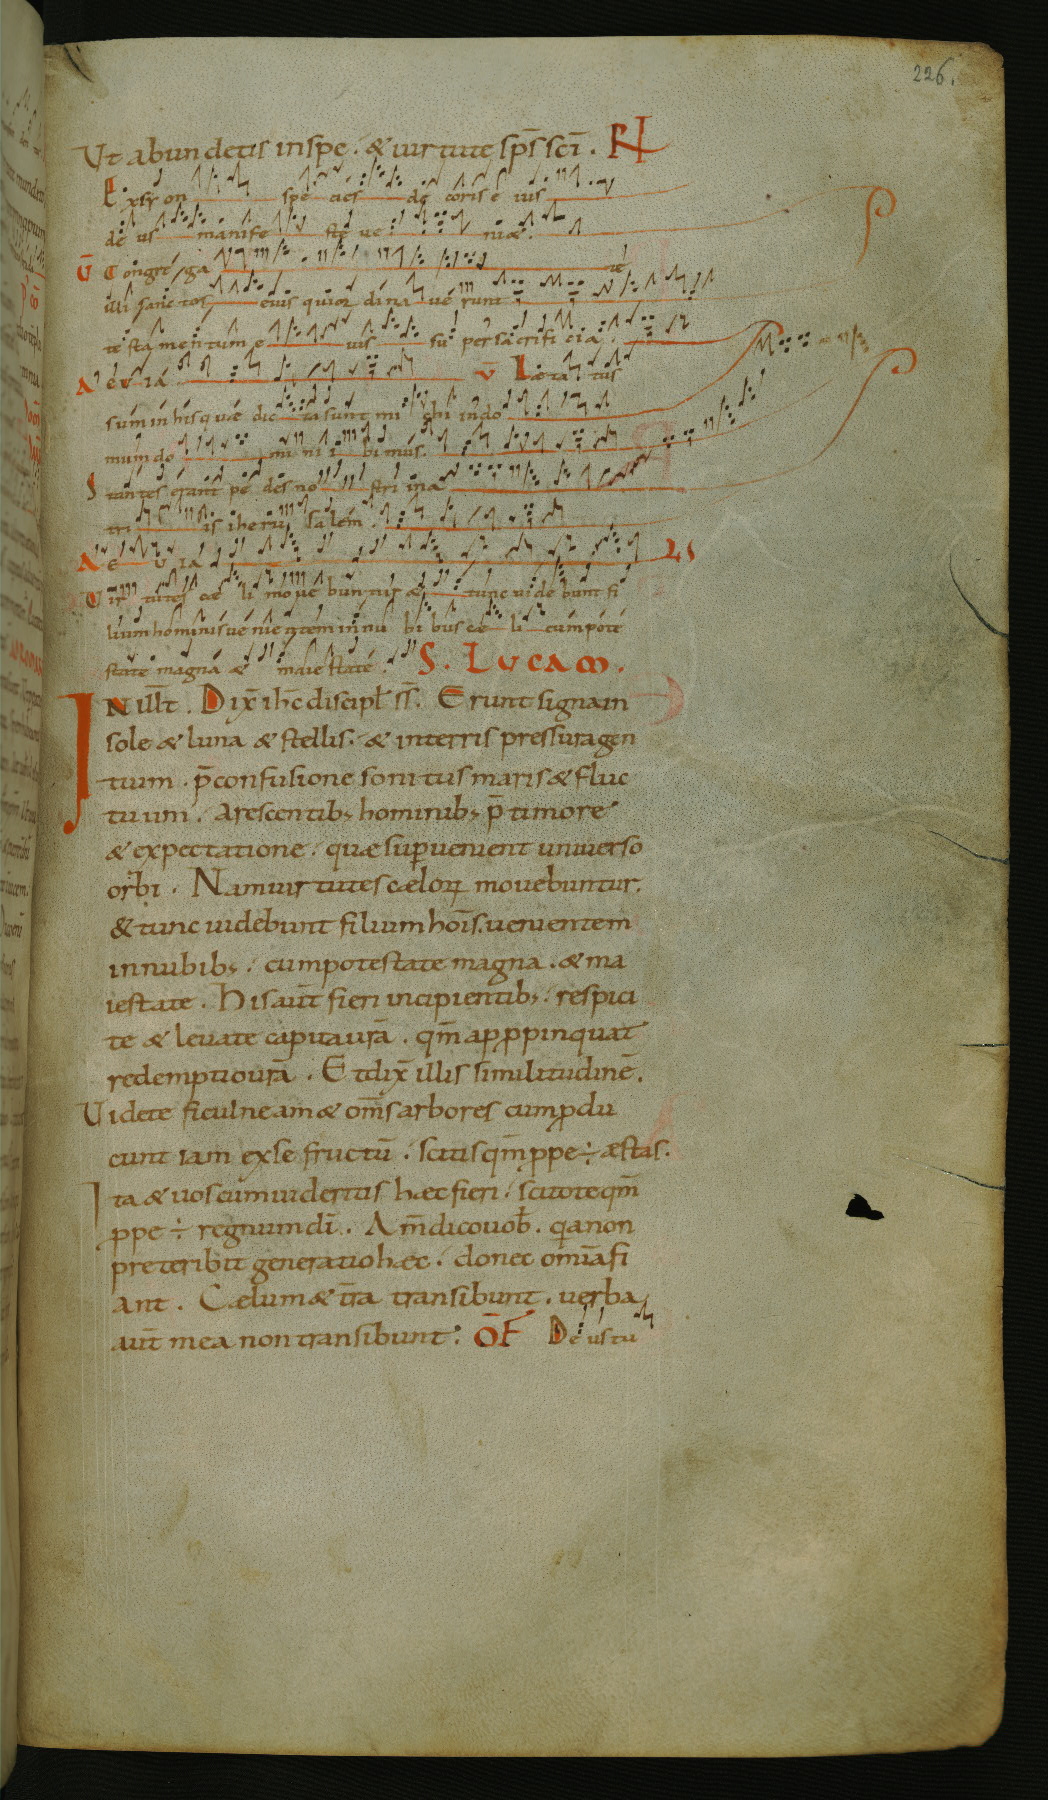 226.
Ut abundetis in spe . & uirtute sp̄s sc̄i . R
Exsyon species decoris eius
deus manifeste ueniæ .
V̄ Congregate
illi sanctos eius qui ordinauerunt
testamentum eius super sacrificia .
A e u ia V̄ Lætatus
sum in his quæ dicta sunt mihi in do
mum do mini ibimus .
Stantes erant pedes nostri in a
triis iherusalem .
A e u ia
Uirtutes cæli mouebuntur & tunc uidebunt fi
lium hominis uenientem in nubibus cæli cum pote
state magna & maiestate . S. LUCAM .
IN ill̄t . Dix̄ ih̄c discipl̄ ss̄ . Erunt signa in
sole & luna & stellis . & in terris pressura gen
tium . p̄ confusione sonitus maris & fluc
tuum . Arescentib; hominib; p̄ timore
& expectatione . quæ superuenient uniuerso
orbi . Nam uirtutes cælorꝝ mouebuntur .
& tunc uidebunt filium hoīs . uenientem
in nubib; . cum potestate magna . & ma
iestate . His aut̄ fieri incipientib; . respici
te & leuate capita ur̄a . qm̄ appropinquat
redemptio ur̄a . Et dix̄ illis similitudinē .
Uidete ficulneam & om̄s arbores cum produ
cunt iam ex se fructū . scitis qm̄ prope ÷ æstas .
Ita & uos cum uideritis hæc fieri . scitote qm̄
prope ÷ regnum dī . Am̄ dico uob̄ . qa non
preteribit generatio hæc . donec omīa fi
ant . Cælum & tr̄a transibunt . uerba
aut̄ mea non transibunt . OF̄ Deus tu